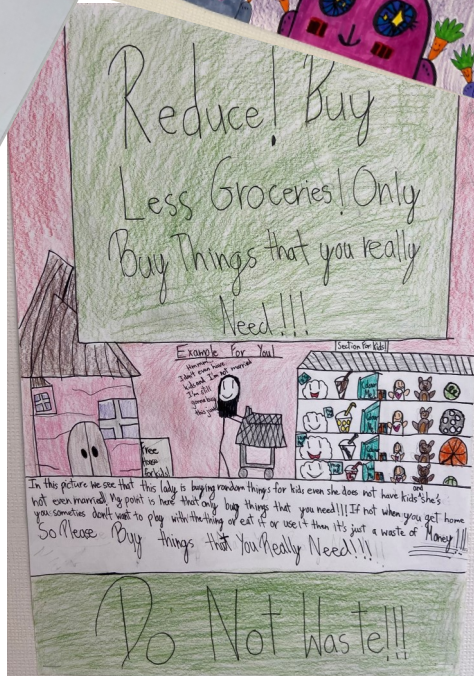 Reduce! Buy
Less Groceries! Only
Buy Things that you really
Need!!!
Example For You!
Section for Kids!
Hmmm...
I don't even have
kids and I'm not married
I'm still
gonna buy
this junk!
Free
for kids!
In this picture we see that this lady is buying random things for kids even she does not have kids and she's
not even married. My point is here that only buy things that you need!!! If not when you get home
you someties don't want to play with the thing or eat it or use it then it's just a waste of Money!!!
So Please Buy things that You Really Need!!!
Do Not Waste!!!